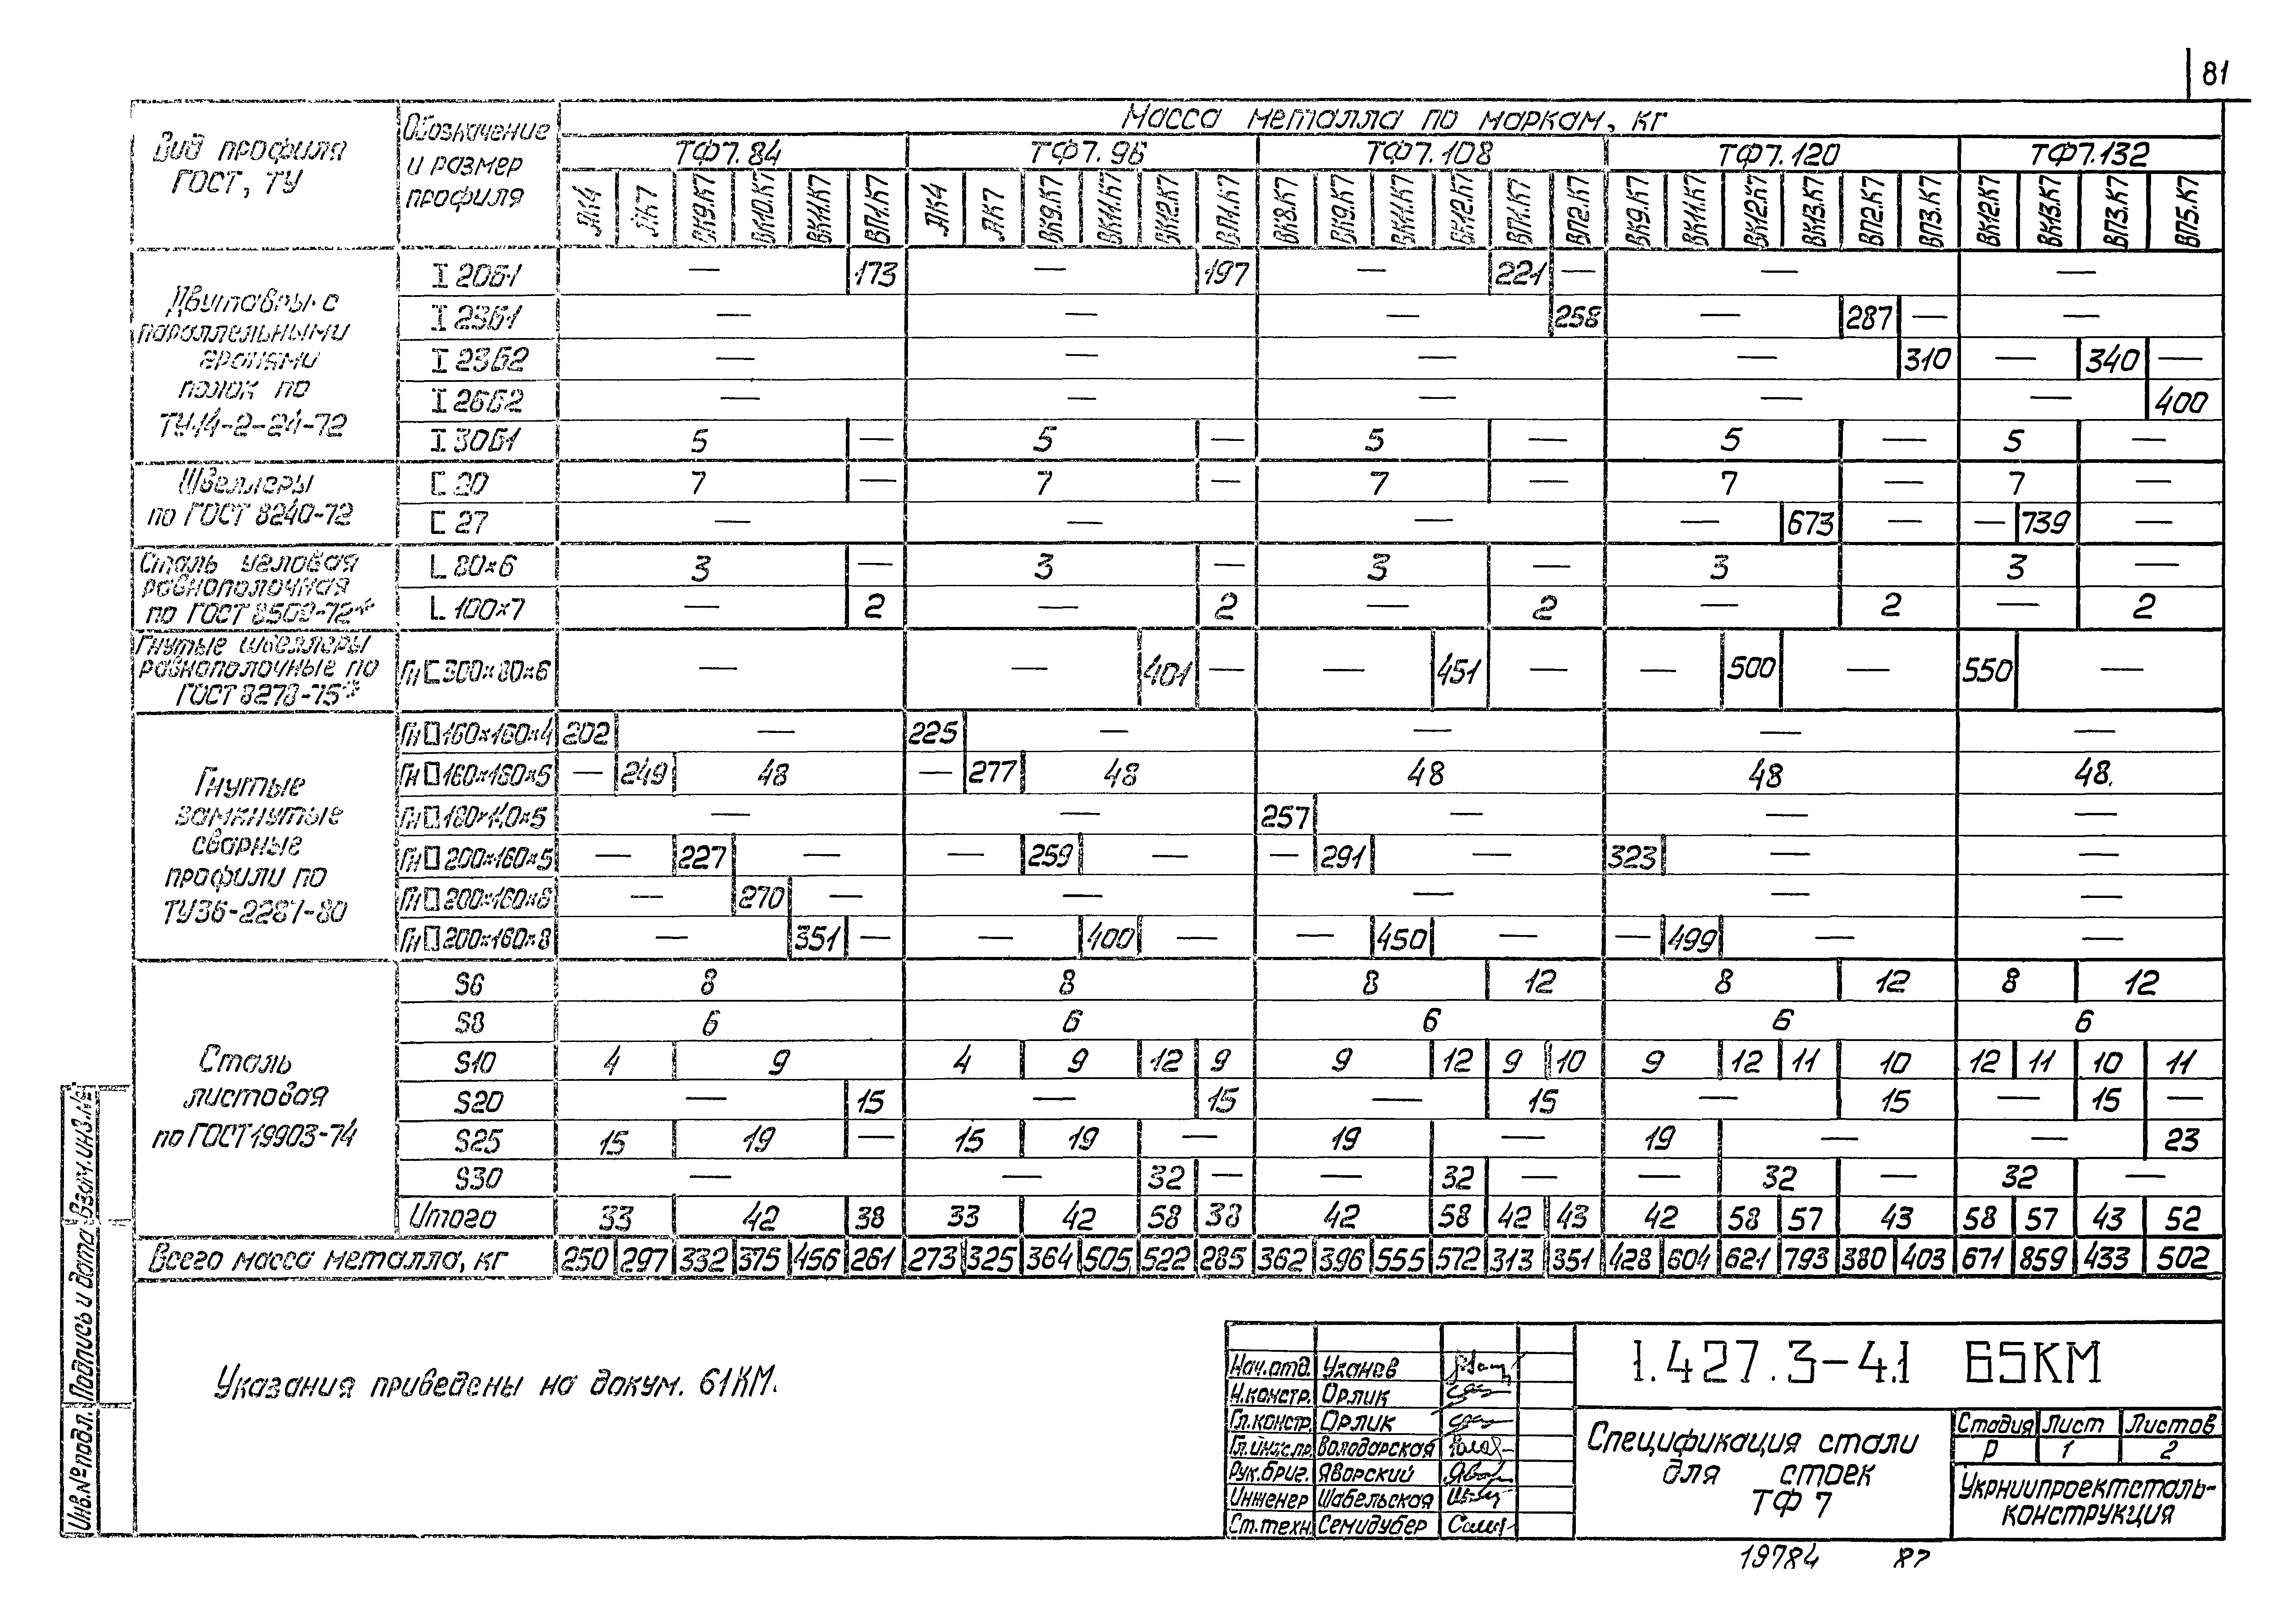 81
Вид профиля ГОСТ, ТУ | Обозначение и размер профиля | Масса металла по маркам, кг
ТФ7.84 | ТФ7.96 | ТФ7.108 | ТФ7.120 | ТФ7.132
ЛК4 | ЛК7 | СК9.К7 | ВК10.К7 | ВК11.К7 | ВП1.К7 | ЛК4 | ЛК7 | ВК9.К7 | ВК11.К7 | ВК12.К7 | ВП1.К7 | ВК8.К7 | ВК9.К7 | ВК11.К7 | ВК12.К7 | ВП1.К7 | ВП2.К7 | ВК9.К7 | ВК11.К7 | ВК12.К7 | ВК13.К7 | ВП2.К7 | ВП3.К7 | ВК12.К7 | ВК13.К7 | ВП3.К7 | ВП5.К7
Двутавры с параллельными гранями полок по ТУ14-2-24-72
I 20Б1 | — | 173 | — | 197 | — | 221 | — | — | —
I 23Б1 | — | — | — | 258 | — | 287 | — | —
I 23Б2 | — | — | — | — | 310 | — | 340 | —
I 26Б2 | — | — | — | — | — | 400
I 30Б1 | 5 | — | 5 | — | 5 | — | 5 | — | 5 | —
Швеллеры по ГОСТ 8240-72
[ 20 | 7 | — | 7 | — | 7 | — | 7 | — | 7 | —
[ 27 | — | — | — | — | 673 | — | — | 739 | —
Сталь угловая равнополочная по ГОСТ 8509-72*
L 80×6 | 3 | — | 3 | — | 3 | — | 3 | 3 | —
L 100×7 | — | 2 | — | 2 | — | 2 | — | 2 | — | 2
Гнутые швеллеры равнополочные по ГОСТ 8278-75*
Гн[300×80×6 | — | — | 401 | — | — | 451 | — | — | 500 | — | 550 | —
Гнутые замкнутые сварные профили по ТУ36-2287-80
Гн□160×160×4 | 202 | — | 225 | — | — | — | —
Гн□160×160×5 | — | 249 | 48 | — | 277 | 48 | 48 | 48 | 48.
Гн□180×140×5 | — | — | 257 | — | — | —
Гн□200×160×5 | — | 227 | — | — | 259 | — | — | 291 | — | 323 | — | —
Гн□200×160×6 | — | 270 | — | — | — | — | —
Гн□200×160×8 | — | 351 | — | — | 400 | — | — | 450 | — | — | 499 | — | —
Сталь листовая по ГОСТ 19903-74
S6 | 8 | 8 | 8 | 12 | 8 | 12 | 8 | 12
S8 | 6 | 6 | 6 | 6 | 6
S10 | 4 | 9 | 4 | 9 | 12 | 9 | 9 | 12 | 9 | 10 | 9 | 12 | 11 | 10 | 12 | 11 | 10 | 11
S20 | — | 15 | — | 15 | — | 15 | — | 15 | — | 15 | —
S25 | 15 | 19 | — | 15 | 19 | — | 19 | — | 19 | — | — | 23
S30 | — | — | 32 | — | — | 32 | — | — | 32 | — | 32 | —
Итого | 33 | 42 | 38 | 33 | 42 | 58 | 38 | 42 | 58 | 42 | 43 | 42 | 58 | 57 | 43 | 58 | 57 | 43 | 52
Всего масса металла, кг | 250 | 297 | 332 | 375 | 456 | 261 | 273 | 325 | 364 | 505 | 522 | 285 | 362 | 396 | 555 | 572 | 313 | 351 | 428 | 604 | 621 | 793 | 380 | 403 | 671 | 859 | 433 | 502
Указания приведены на докум. 61КМ.
Взам.инв.№
Подпись и дата
Инв.№подл.
Нач.отд. Уханев
Н.констр. Орлик
Гл.констр. Орлик
Гл.инж.пр. Володарская
Рук.бриг. Яворский
Инженер Шабельская
Ст.техн. Семидубер
1.427.3-4.1 65КМ
Спецификация стали
для стоек
ТФ 7
Стадия Лист Листов
Р 1 2
Укрниипроектсталь-
конструкция
19784 82